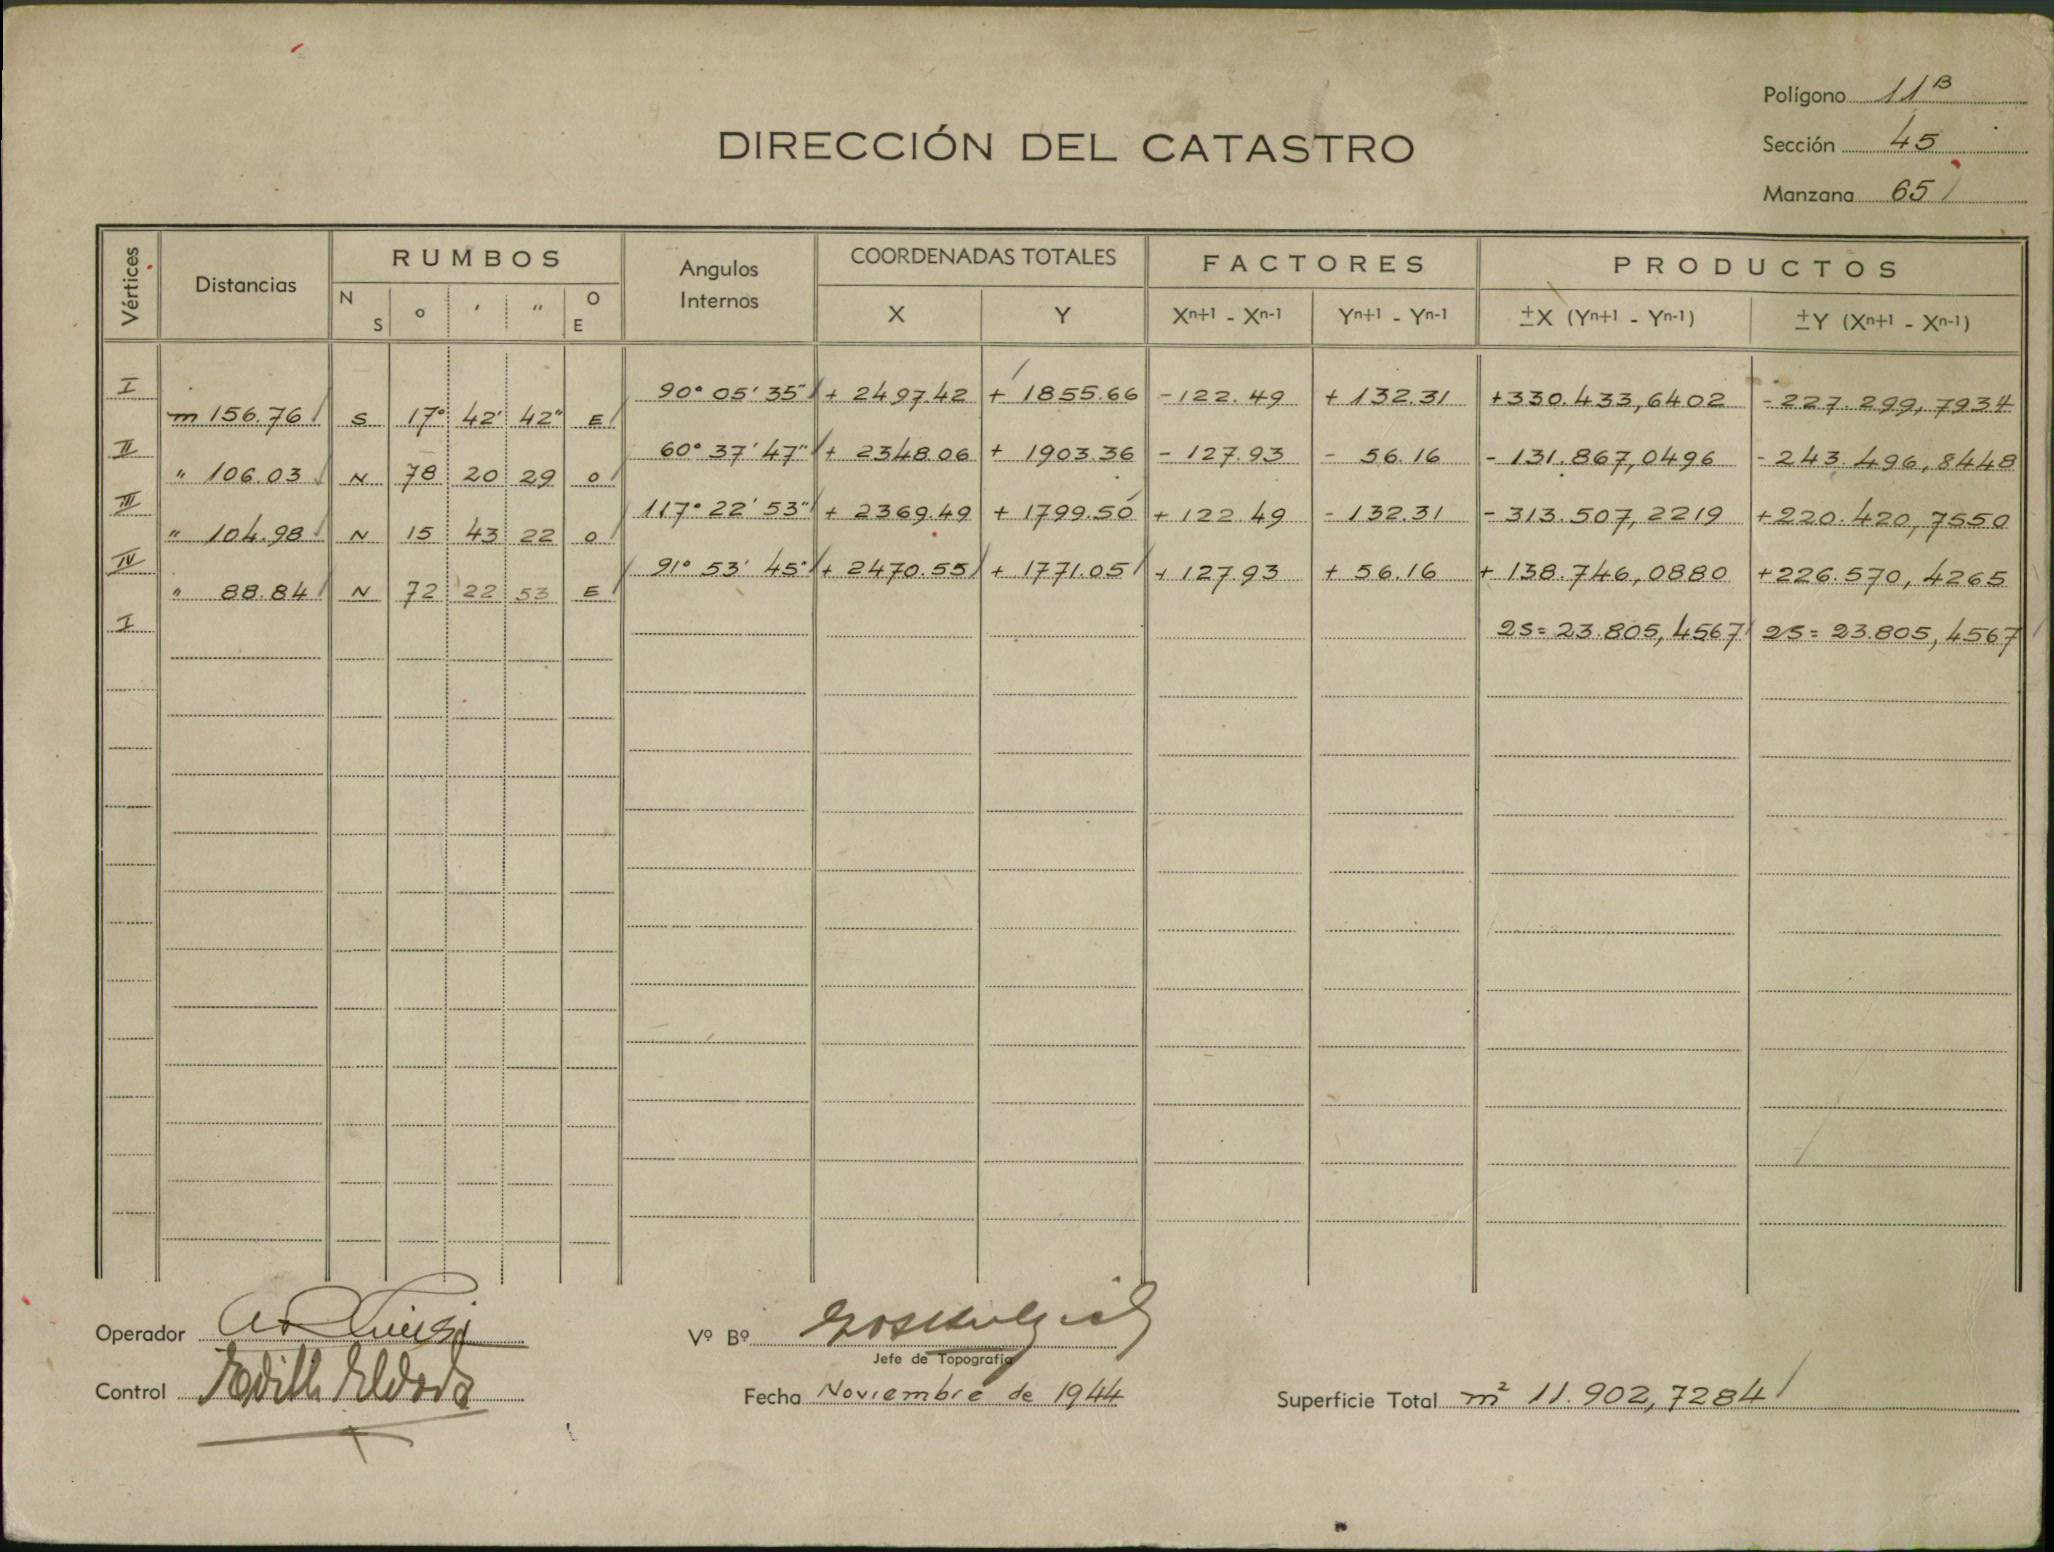 Polígono 11B
Sección 45
Manzana 65
DIRECCIÓN DEL CATASTRO
Vértices Distancias RUMBOS Angulos Internos COORDENADAS TOTALES FACTORES PRODUCTOS
N S ° ′ ″ O E X Y Xn+1 - Xn-1 Yn+1 - Yn-1 ±X (Yn+1 - Yn-1) ±Y (Xn+1 - Xn-1)
I 90° 05' 35" + 2497.42 + 1855.66 - 122.49 + 132.31 +330.433,6402 - 227.299,7934
m 156.76 S 17° 42' 42" E
II 60° 37' 47" + 2348.06 + 1903.36 - 127.93 - 56.16 - 131.867,0496 - 243.496,8448
" 106.03 N 78 20 29 O
III 117° 22' 53" + 2369.49 + 1799.50 + 122.49 - 132.31 - 313.507,2219 +220.420,7550
" 104.98 N 15 43 22 O
IV 91° 53' 45" + 2470.55 + 1771.05 + 127.93 + 56.16 + 138.746,0880 +226.570,4265
" 88.84 N 72 22 53 E
I 2S= 23.805,4567 2S= 23.805,4567
Operador
Vº Bº
Jefe de Topografía
Control
Fecha Noviembre de 1944
Superficie Total m² 11.902,7284